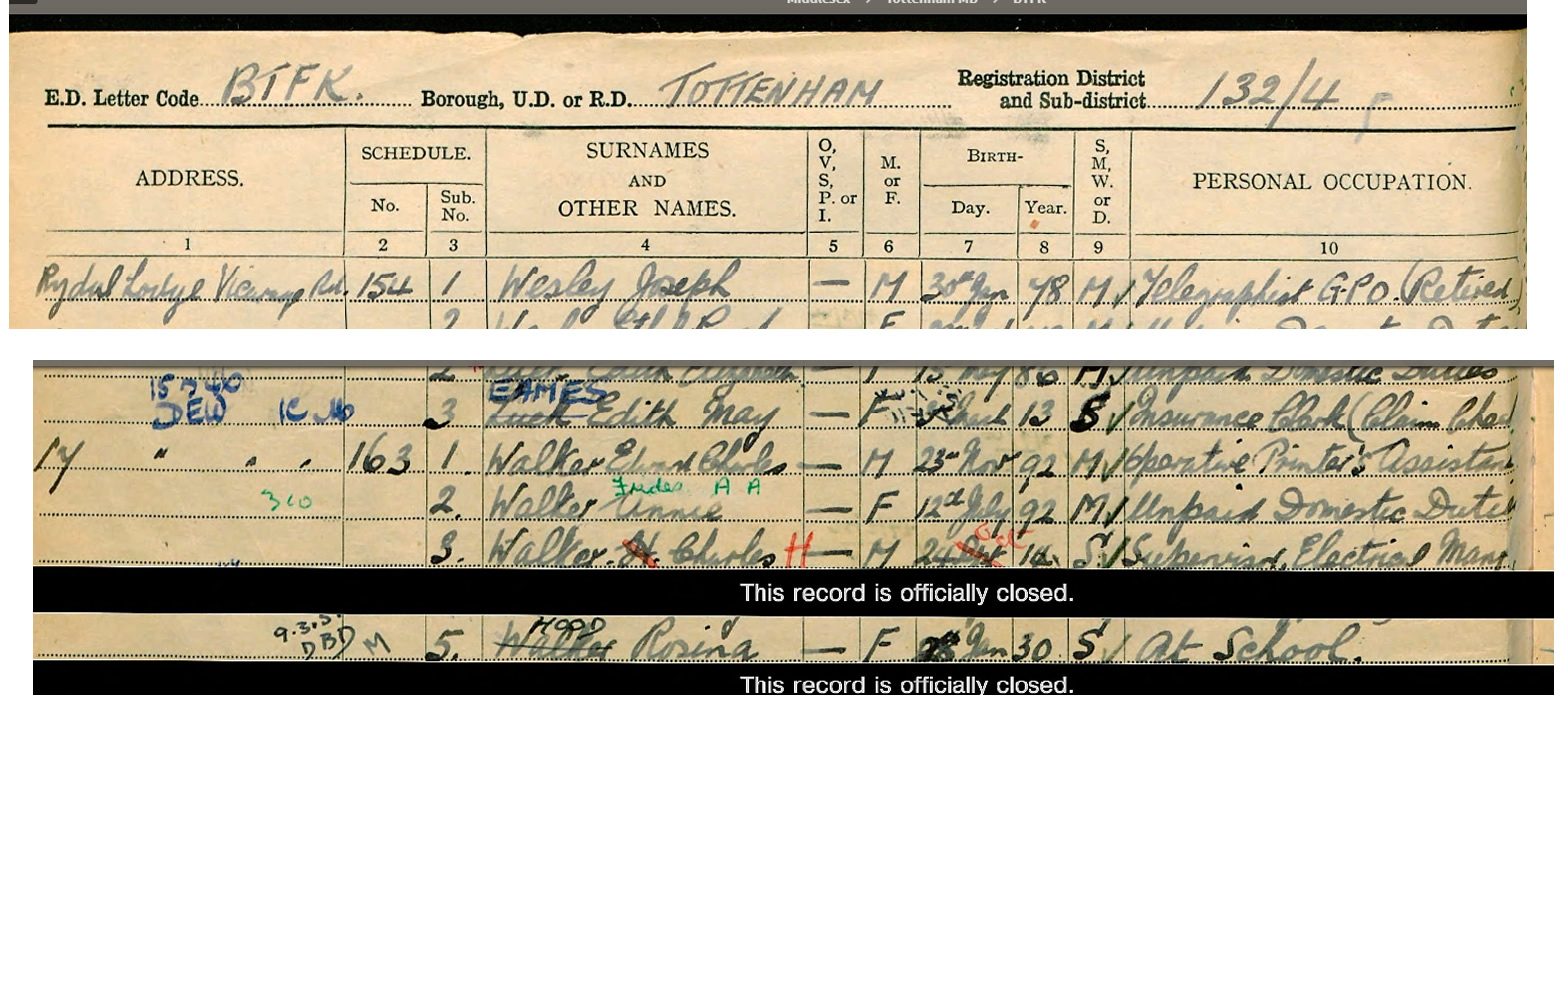 Middlesex > Tottenham MB > BTFK
E.D. Letter Code BTFK. Borough, U.D. or R.D. TOTTENHAM Registration District and Sub-district 132/4
ADDRESS. SCHEDULE. No. Sub. No. SURNAMES AND OTHER NAMES. O, V, S, P. or I. M. or F. BIRTH- Day. Year. S, M, W. or D. PERSONAL OCCUPATION.
1 2 3 4 5 6 7 8 9 10
Rydal Lodge Vicarage Rd. 154 1 Wesley Joseph — M 30th Jan 78 M Telegraphist G.P.O. (Retired)
2 F
2 Edith Elizabeth — F 86 M Unpaid Domestic Duties
15 7 40 EAMES
DEW 3 Luck Edith May — F 13 S Insurance Clerk (Claim
17 " " " 163 1. Walker Edward Charles — M 23rd Nov 92 M Operative Printer's Assistant
Freda A A
310 2. Walker Annie — F 12th July 92 M Unpaid Domestic Duties
Oct
3. Walker. H. Charles H — M 24 14 S Supervisor, Electrical Manf
This record is officially closed.
9.3.5. HOPD
DBD M 5. Walker Rosina — F 28th Jan 30 S At School.
This record is officially closed.